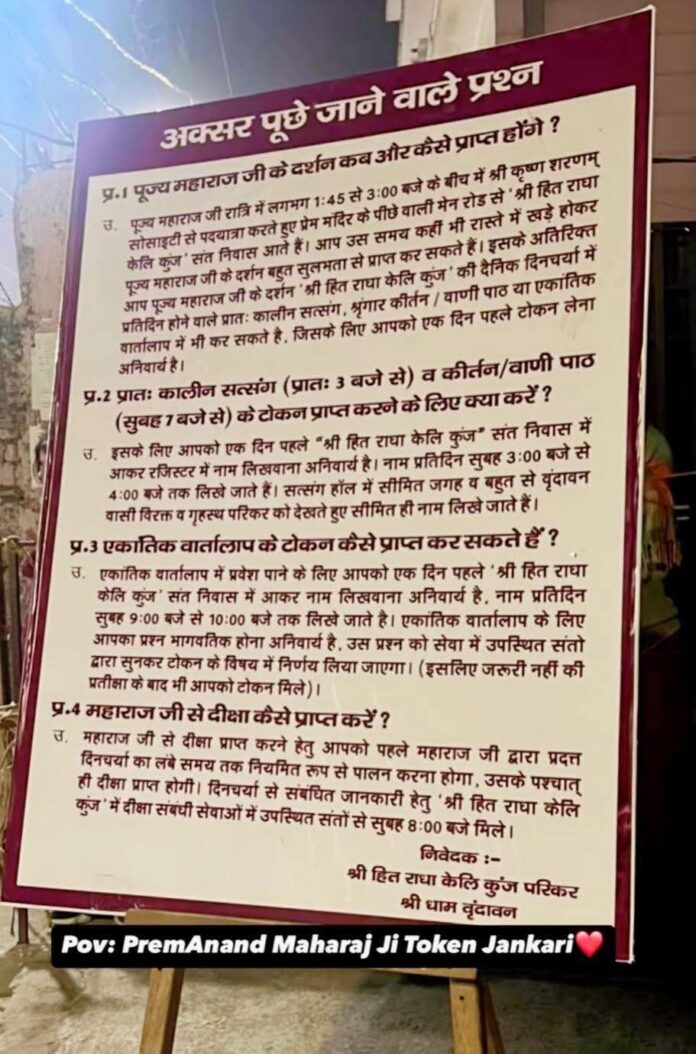 अक्सर पूछे जाने वाले प्रश्न
प्र.1 पूज्य महाराज जी के दर्शन कब और कैसे प्राप्त होंगे ?
उ. पूज्य महाराज जी रात्रि में लगभग 1:45 से 3:00 बजे के बीच में श्री कृष्ण शरणम्
सोसाइटी से पदयात्रा करते हुए प्रेम मंदिर के पीछे वाली मेन रोड से 'श्री हित राधा
केलि कुंज' संत निवास आते हैं। आप उस समय कहीं भी रास्ते में खड़े होकर
पूज्य महाराज जी के दर्शन बहुत सुलभता से प्राप्त कर सकते हैं। इसके अतिरिक्त
आप पूज्य महाराज जी के दर्शन 'श्री हित राधा केलि कुंज' की दैनिक दिनचर्या में
प्रतिदिन होने वाले प्रातः कालीन सत्संग, श्रृंगार कीर्तन / वाणी पाठ या एकांतिक
वार्तालाप में भी कर सकते है, जिसके लिए आपको एक दिन पहले टोकन लेना
अनिवार्य है।
प्र.2 प्रातः कालीन सत्संग (प्रातः 3 बजे से) व कीर्तन/वाणी पाठ
(सुबह 7 बजे से) के टोकन प्राप्त करने के लिए क्या करें ?
उ. इसके लिए आपको एक दिन पहले "श्री हित राधा केलि कुंज" संत निवास में
आकर रजिस्टर में नाम लिखवाना अनिवार्य है। नाम प्रतिदिन सुबह 3:00 बजे से
4:00 बजे तक लिखे जाते हैं। सत्संग हॉल में सीमित जगह व बहुत से वृंदावन
वासी विरक्त व गृहस्थ परिकर को देखते हुए सीमित ही नाम लिखे जाते हैं।
प्र.3 एकांतिक वार्तालाप के टोकन कैसे प्राप्त कर सकते हैं ?
उ. एकांतिक वार्तालाप में प्रवेश पाने के लिए आपको एक दिन पहले 'श्री हित राधा
केलि कुंज' संत निवास में आकर नाम लिखवाना अनिवार्य है, नाम प्रतिदिन
सुबह 9:00 बजे से 10:00 बजे तक लिखे जाते है। एकांतिक वार्तालाप के लिए
आपका प्रश्न भागवतिक होना अनिवार्य है, उस प्रश्न को सेवा में उपस्थित संतो
द्वारा सुनकर टोकन के विषय में निर्णय लिया जाएगा। (इसलिए जरूरी नहीं की
प्रतीक्षा के बाद भी आपको टोकन मिले)।
प्र.4 महाराज जी से दीक्षा कैसे प्राप्त करें ?
उ. महाराज जी से दीक्षा प्राप्त करने हेतु आपको पहले महाराज जी द्वारा प्रदत्त
दिनचर्या का लंबे समय तक नियमित रूप से पालन करना होगा, उसके पश्चात्
ही दीक्षा प्राप्त होगी। दिनचर्या से संबंधित जानकारी हेतु 'श्री हित राधा केलि
कुंज' में दीक्षा संबंधी सेवाओं में उपस्थित संतों से सुबह 8:00 बजे मिले।
निवेदक :-
श्री हित राधा केलि कुंज परिकर
श्री धाम वृंदावन
Pov: PremAnand Maharaj Ji Token Jankari❤️